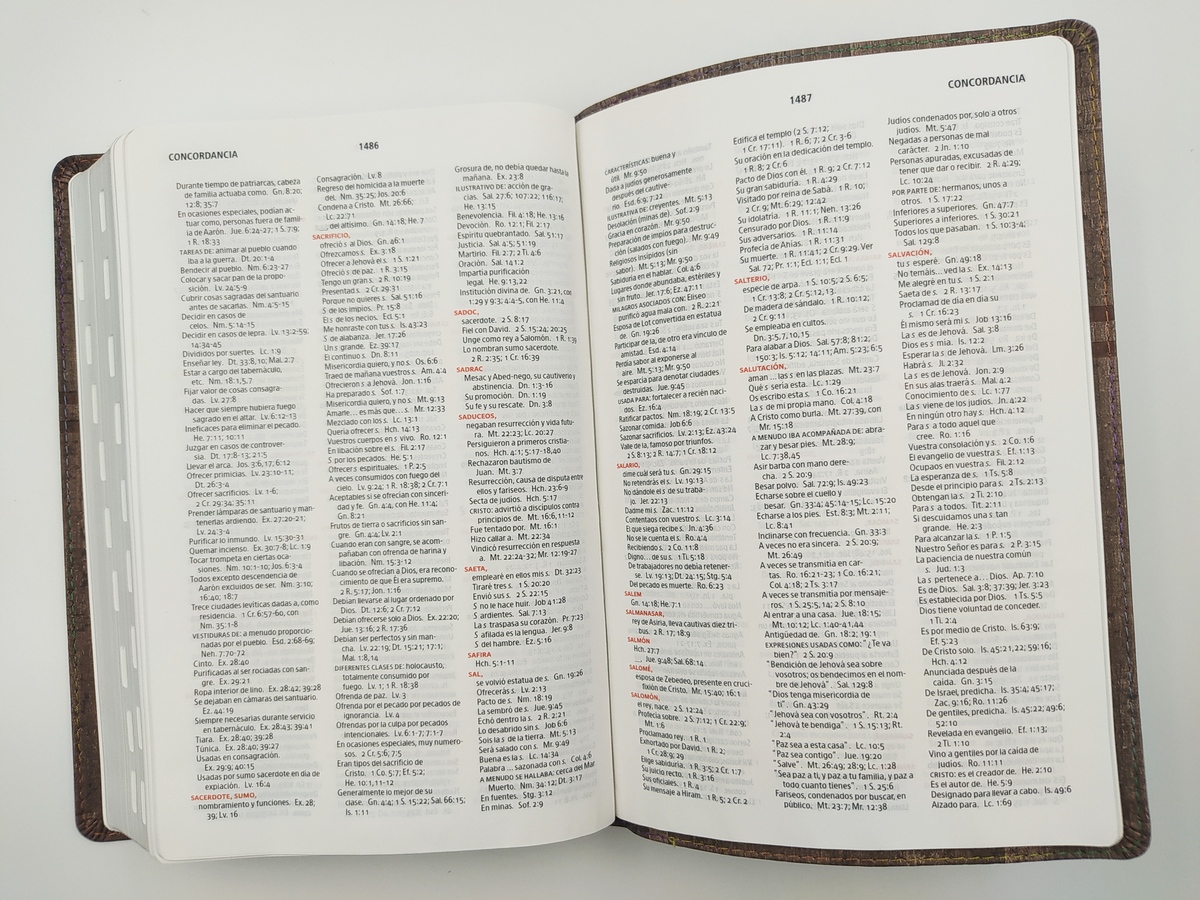 CONCORDANCIA
1486
Durante tiempo de patriarcas, cabeza
de familia actuaba como. Gn. 8:20;
12:8; 35:7
En ocasiones especiales, podían ac-
tuar como, personas fuera de famil-
ia de Aarón. Jue. 6:24-27; 1 S. 7:9;
1 R. 18:33
TAREAS DE: animar al pueblo cuando
iba a la guerra. Dt. 20:1-4
Bendecir al pueblo. Nm. 6:23-27
Colocar y sacar pan de la propo-
sición. Lv. 24:5-9
Cubrir cosas sagradas del santuario
antes de sacarlas. Nm. 4:5-15
Decidir en casos de
celos. Nm. 5:14-15
Decidir en casos de lepra. Lv. 13:2-59;
14:34-45
Divididos por suertes. Lc. 1:9
Enseñar ley. Dt. 33:8, 10; Mal. 2:7
Estar a cargo del tabernáculo,
etc. Nm. 18:1,5,7
Fijar valor de cosas consagra-
das. Lv. 27:8
Hacer que siempre hubiera fuego
sagrado en el altar. Lv. 6:12-13
Ineficaces para eliminar el pecado.
He. 7:11; 10:11
Juzgar en casos de controver-
sia. Dt. 17:8-13; 21:5
Llevar el arca. Jos. 3:6,17; 6:12
Ofrecer primicias. Lv. 23:10-11;
Dt. 26:3-4
Ofrecer sacrificios. Lv. 1-6;
2 Cr. 29:34; 35:11
Prender lámparas de santuario y man-
tenerlas ardiendo. Ex. 27:20-21;
Lv. 24:3-4
Purificar lo inmundo. Lv. 15:30-31
Quemar incienso. Ex. 30:7-8; Lc. 1:9
Tocar trompeta en ciertas oca-
siones. Nm. 10:1-10; Jos. 6:3-4
Todos excepto descendencia de
Aarón excluidos de ser. Nm. 3:10;
16:40; 18:7
Trece ciudades levíticas dadas a, como
residencia. 1 Cr. 6:57-60, con
Nm. 35:1-8
VESTIDURAS DE: a menudo proporcio-
nadas por el pueblo. Esd. 2:68-69;
Neh. 7:70-72
Cinto. Ex. 28:40
Purificadas al ser rociadas con san-
gre. Ex. 29:21
Ropa interior de lino. Ex. 28:42; 39:28
Se dejaban en cámaras del santuario.
Ez. 44:19
Siempre necesarias durante servicio
en tabernáculo. Ex. 28:43; 39:41
Tiara. Ex. 28:40; 39:28
Túnica. Ex. 28:40; 39:27
Usadas en consagración.
Ex. 29:9; 40:15
Usadas por sumo sacerdote en día de
expiación. Lv. 16:4
SACERDOTE, SUMO,
nombramiento y funciones. Ex. 28;
39; Lv. 16
Consagración. Lv. 8
Regreso del homicida a la muerte
del. Nm. 35:25; Jos. 20:6
Condena a Cristo. Mt. 26:66;
Lc. 22:71
__ del altísimo. Gn. 14:18; He. 7
SACRIFICIO,
ofreció s al Dios. Gn. 46:1
Ofrezcamos s. Ex. 3:18
Ofrecer a Jehová el s. 1 S. 1:21
Ofreció s de paz. 1 R. 3:15
Tengo un gran s. 2 R. 10:19
Presentad s. 2 Cr. 29:31
Porque no quieres s. Sal. 51:16
S de los impíos. Pr. 15:8
El s de los necios. Ecl. 5:1
Me honraste con tus s. Is. 43:23
S de alabanza. Jer. 17:26
Un s grande. Ez. 39:17
El continuo s. Dn. 8:11
Misericordia quiero, y no s. Os. 6:6
Traed de mañana vuestros s. Am. 4:4
Ofrecieron s a Jehová. Jon. 1:16
Ha preparado s. Sof. 1:7
Misericordia quiero, y no s. Mt. 9:13
Amarle... es más que... s. Mr. 12:33
Mezclado con los s. Lc. 13:1
Quería ofrecer s. Hch. 14:13
Vuestros cuerpos en s vivo. Ro. 12:1
En libación sobre el s. Fil. 2:17
S por los pecados. He. 5:1
Ofrecer s espirituales. 1 P. 2:5
A veces consumidos con fuego del
cielo. Lv. 9:24; 1 R. 18:38; 2 Cr. 7:1
Aceptables si se ofrecían con sinceri-
dad y fe. Gn. 4:4, con He. 11:4;
Gn. 8:21
Frutos de tierra o sacrificios sin san-
gre. Gn. 4:4; Lv. 2:1
Cuando eran con sangre, se acom-
pañaban con ofrenda de harina y
libación. Nm. 15:3-12
Cuando se ofrecían a Dios, era recono-
cimiento de que Él era supremo.
2 R. 5:17; Jon. 1:16
Debían llevarse al lugar ordenado por
Dios. Dt. 12:6; 2 Cr. 7:12
Debían ofrecerse solo a Dios. Ex. 22:20;
Jue. 13:16; 2 R. 17:36
Debían ser perfectos y sin man-
cha. Lv. 22:19; Dt. 15:21; 17:1;
Mal. 1:8,14
DIFERENTES CLASES DE: holocausto,
totalmente consumido por
fuego. Lv. 1; 1 R. 18:38
Ofrenda de paz. Lv. 3
Ofrenda por el pecado por pecados de
ignorancia. Lv. 4
Ofrendas por la culpa por pecados
intencionales. Lv. 6:1-7; 7:1-7
En ocasiones especiales, muy numero-
sos. 2 Cr. 5:6; 7:5
Eran tipos del sacrificio de
Cristo. 1 Co. 5:7; Ef. 5:2;
He. 10:1,11-12
Generalmente lo mejor de su
clase. Gn. 4:4; 1 S. 15:22; Sal. 66:15;
Is. 1:11
Grosura de, no debía quedar hasta la
mañana. Ex. 23:8
ILUSTRATIVO DE: acción de gra-
cias. Sal. 27:6; 107:22; 116:17;
He. 13:15
Benevolencia. Fil. 4:18; He. 13:16
Devoción. Ro. 12:1; Fil. 2:17
Espíritu quebrantado. Sal. 51:17
Justicia. Sal. 4:5; 51:19
Martirio. Fil. 2:7; 2 Ti. 4:6
Oración. Sal. 141:2
Impartía purificación
legal. He. 9:13,22
Institución divina de. Gn. 3:21, con
1:29 y 9:3; 4:4-5, con He. 11:4
SADOC,
sacerdote. 2 S. 8:17
Fiel con David. 2 S. 15:24; 20:25
Unge como rey a Salomón. 1 R. 1:39
Lo nombran sumo sacerdote.
2 R. 2:35; 1 Cr. 16:39
SADRAC
Mesac y Abed-nego, su cautiverio y
abstinencia. Dn. 1:3-16
Su promoción. Dn. 1:19
Su fe y su rescate. Dn. 3:8
SADUCEOS,
negaban resurrección y vida futu-
ra. Mt. 22:23; Lc. 20:27
Persiguieron a primeros cristia-
nos. Hch. 4:1; 5:17-18,40
Rechazaron bautismo de
Juan. Mt. 3:7
Resurrección, causa de disputa entre
ellos y fariseos. Hch. 23:6-9
Secta de judíos. Hch. 5:17
CRISTO: advirtió a discípulos contra
principios de. Mt. 16:6,11-12
Fue tentado por. Mt. 16:1
Hizo callar a. Mt. 22:34
Vindicó resurrección en respuesta
a. Mt. 22:24-32; Mr. 12:19-27
SAETA,
emplearé en ellos mis s. Dt. 32:23
Tiraré tres s. 1 S. 20:20
Envió sus s. 2 S. 22:15
S no le hace huir. Job 41:28
S ardientes. Sal. 7:13
La s traspasa su corazón. Pr. 7:23
S afilada es la lengua. Jer. 9:8
S del hambre. Ez. 5:16
SAFIRA
Hch. 5:1-11
SAL,
se volvió estatua de s. Gn. 19:26
Ofrecerás s. Lv. 2:13
Pacto de s. Nm. 18:19
La sembró de s. Jue. 9:45
Echó dentro la s. 2 R. 2:21
Lo desabrido sin s. Job 6:6
Sois la s de la tierra. Mt. 5:13
Será salado con s. Mr. 9:49
Buena es la s. Lc. 14:34
Palabra... sazonada con s. Col. 4:6
A MENUDO SE HALLABA: cerca del Mar
Muerto. Nm. 34:12; Dt. 3:17
En fuentes. Stg. 3:12
En minas. Sof. 2:9
1487
CONCORDANCIA
CARACTERÍSTICAS: buena y
útil. Mr. 9:50
Dada a judíos generosamente
después del cautive-
rio. Esd. 6:9; 7:22
ILUSTRATIVA DE: creyentes. Mt. 5:13
Desolación (minas de). Sof. 2:9
Gracia en corazón. Mr. 9:50
Preparación de impíos para destruc-
ción (salados con fuego). Mr. 9:49
Religiosos insípidos (sin
sabor). Mt. 5:13; Mr. 9:50
Sabiduría en el hablar. Col. 4:6
Lugares donde abundaba, estériles y
sin fruto. Jer. 17:6; Ez. 47:11
MILAGROS ASOCIADOS CON: Eliseo
purificó agua mala con. 2 R. 2:21
Esposa de Lot convertida en estatua
de. Gn. 19:26
Participar de la, de otro era vínculo de
amistad. Esd. 4:14
Perdía sabor al exponerse al
aire. Mt. 5:13; Mr. 9:50
Se esparcía para denotar ciudades
destruidas. Jue. 9:45
USADA PARA: fortalecer a recién naci-
dos. Ez. 16:4
Ratificar pactos. Nm. 18:19; 2 Cr. 13:5
Sazonar comida. Job 6:6
Sazonar sacrificios. Lv. 2:13; Ez. 43:24
Valle de la, famoso por triunfos.
2 S. 8:13; 2 R. 14:7; 1 Cr. 18:12
SALARIO,
dime cuál será tu s. Gn. 29:15
No retendrás el s. Lv. 19:13
No dándole el s de su traba-
jo. Jer. 22:13
Dadme mi s. Zac. 11:12
Contentaos con vuestro s. Lc. 3:14
El que siega recibe s. Jn. 4:36
No se le cuenta el s. Ro. 4:4
Recibiendo s. 2 Co. 11:8
Digno... de su s. 1 Ti. 5:18
De trabajadores no debía retener-
se. Lv. 19:13; Dt. 24:15; Stg. 5:4
Del pecado es muerte. Ro. 6:23
SALEM
Gn. 14:18; He. 7:1
SALMANASAR,
rey de Asiria, lleva cautivas diez tri-
bus. 2 R. 17; 18:9
SALMÓN
Hch. 27:7
__, Jue. 9:48; Sal. 68:14
SALOMÉ,
esposa de Zebedeo, presente en cruci-
fixión de Cristo. Mr. 15:40; 16:1
SALOMÓN,
el rey, nace. 2 S. 12:24
Profecía sobre. 2 S. 7:12; 1 Cr. 22:9;
Mt. 1:6
Proclamado rey. 1 R. 1
Exhortado por David. 1 R. 2;
1 Cr. 28:9; 29
Elige sabiduría. 1 R. 3:5; 2 Cr. 1:7
Su juicio recto. 1 R. 3:16
Sus oficiales. 1 R. 4
Su mensaje a Hiram. 1 R. 5; 2 Cr. 2
Edifica el templo (2 S. 7:12;
1 Cr. 17:11). 1 R. 6; 7; 2 Cr. 3-6
Su oración en la dedicación del templo.
1 R. 8; 2 Cr. 6
Pacto de Dios con él. 1 R. 9; 2 Cr. 7:12
Su gran sabiduría. 1 R. 4:29
Visitado por reina de Sabá. 1 R. 10;
2 Cr. 9; Mt. 6:29; 12:42
Su idolatría. 1 R. 11:1; Neh. 13:26
Censurado por Dios. 1 R. 11:9
Sus adversarios. 1 R. 11:14
Profecía de Ahías. 1 R. 11:31
Su muerte. 1 R. 11:41; 2 Cr. 9:29. Ver
Sal. 72; Pr. 1:1; Ecl. 1:1; Ecl. 1
SALTERIO,
especie de arpa. 1 S. 10:5; 2 S. 6:5;
1 Cr. 13:8; 2 Cr. 5:12, 13.
De madera de sándalo. 1 R. 10:12;
2 Cr. 9:11
Se empleaba en cultos.
Dn. 3:5,7, 10, 15
Para alabar a Dios. Sal. 57:8; 81:2;
150:3; Is. 5:12; 14:11; Am. 5:23; 6:5
SALUTACIÓN,
aman ... las s en las plazas. Mt. 23:7
Qué s sería esta. Lc. 1:29
Os escribo esta s. 1 Co. 16:21
La s de mi propia mano. Col. 4:18
A Cristo como burla. Mt. 27:39, con
Mr. 15:18
A MENUDO IBA ACOMPAÑADA DE: abra-
zar y besar pies. Mt. 28:9;
Lc. 7:38,45
Asir barba con mano dere-
cha. 2 S. 20:9
Besar polvo. Sal. 72:9; Is. 49:23
Echarse sobre el cuello y
besar. Gn. 33:4; 45:14-15; Lc. 15:20
Echarse a los pies. Est. 8:3; Mt. 2:11;
Lc. 8:41
Inclinarse con frecuencia. Gn. 33:3
A veces no era sincera. 2 S. 20:9;
Mt. 26:49
A veces se transmitía en car-
tas. Ro. 16:21-23; 1 Co. 16:21;
Col. 4:18; 2 Ts. 3:17
A veces se transmitía por mensaje-
ros. 1 S. 25:5, 14; 2 S. 8:10
Al entrar a una casa. Jue. 18:15;
Mt. 10:12; Lc. 1:40-41,44
Antigüedad de. Gn. 18:2; 19:1
EXPRESIONES USADAS COMO: "¿Te va
bien?" 2 S. 20:9
"Bendición de Jehová sea sobre
vosotros; os bendecimos en el nom-
bre de Jehová". Sal. 129:8
"Dios tenga misericordia de
ti". Gn. 43:29
"Jehová sea con vosotros". Rt. 2:4
"Jehová te bendiga". 1 S. 15:13; Rt.
2:4
"Paz sea a esta casa". Lc. 10:5
"Paz sea contigo". Jue. 19:20
"Salve". Mt. 26:49; 28:9; Lc. 1:28
"Sea paz a ti, y paz a tu familia, y paz a
todo cuanto tienes". 1 S. 25:6
Fariseos, condenados por buscar, en
público. Mt. 23:7; Mr. 12:38
Judíos condenados por, solo a otros
judíos. Mt. 5:47
Negadas a personas de mal
carácter. 2 Jn. 1:10
Personas apuradas, excusadas de
tener que dar o recibir. 2 R. 4:29;
Lc. 10:24
POR PARTE DE: hermanos, unos a
otros. 1 S. 17:22
Inferiores a superiores. Gn. 47:7
Superiores a inferiores. 1 S. 30:21
Todos los que pasaban. 1 S. 10:3-4;
Sal. 129:8
SALVACIÓN,
tu s esperé. Gn. 49:18
No temáis... ved la s. Ex. 14:13
Me alegré en tu s. 1 S. 2:1
Saeta de s. 2 R. 13:17
Proclamad de día en día su
s. 1 Cr. 16:23
Él mismo será mi s. Job 13:16
La s es de Jehová. Sal. 3:8
Dios es s mía. Is. 12:2
Esperar la s de Jehová. Lm. 3:26
Habrá s. Jl. 2:32
La s es de Jehová. Jon. 2:9
En sus alas traerá s. Mal. 4:2
Conocimiento de s. Lc. 1:77
La s viene de los judíos. Jn. 4:22
En ningún otro hay s. Hch. 4:12
Para s a todo aquel que
cree. Ro. 1:16
Vuestra consolación y s. 2 Co. 1:6
El evangelio de vuestra s. Ef. 1:13
Ocupaos en vuestra s. Fil. 2:12
La esperanza de s. 1 Ts. 5:8
Desde el principio para s. 2 Ts. 2:13
Obtengan la s. 2 Ti. 2:10
Para s a todos. Tit. 2:11
Si descuidamos una s tan
grande. He. 2:3
Para alcanzar la s. 1 P. 1:5
Nuestro Señor es para s. 2 P. 3:15
La paciencia de nuestra común
s. Jud. 1:3
La s pertenece a... Dios. Ap. 7:10
Es de Dios. Sal. 3:8; 37:39; Jer. 3:23
Es establecida por Dios. 1 Ts. 5:5
Dios tiene voluntad de conceder.
1 Ti. 2:4
Es por medio de Cristo. Is. 63:9;
Ef. 5:23
De Cristo solo. Is. 45:21,22; 59:16;
Hch. 4:12
Anunciada después de la
caída. Gn. 3:15
De Israel, predicha. Is. 35:4; 45:17;
Zac. 9:16; Ro. 11:26
De gentiles, predicha. Is. 45:22; 49:6;
52:10
Revelada en evangelio. Ef. 1:13;
2 Ti. 1:10
Vino a gentiles por la caída de
judíos. Ro. 11:11
CRISTO: es el creador de. He. 2:10
Es el autor de. He. 5:9
Designado para llevar a cabo. Is. 49:6
Alzado para. Lc. 1:69